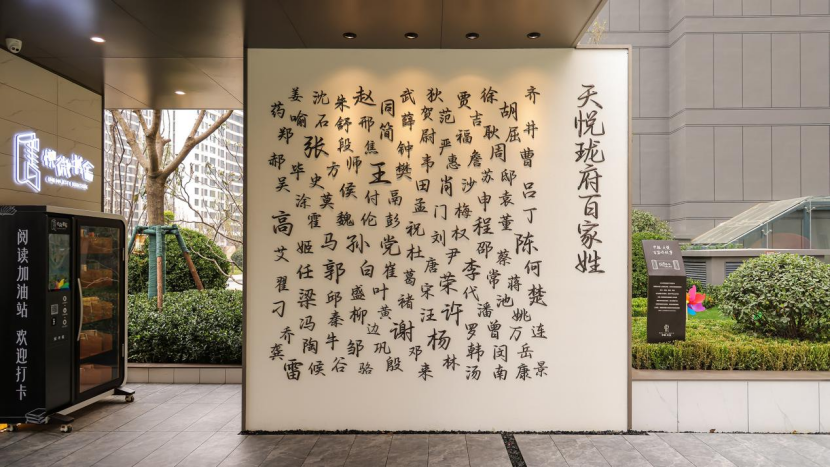 天悦珑府百家姓
齐井曹吕丁陈何楚连景
胡屈邸袁董蔡蒋姚万岳康
徐耿周苏申程邵常池曾闵南
贾吉福詹沙梅权李代潘罗韩汤
狄范严惠肖门尹荣许林
贺尉韦田孟刘唐宋汪杨来
武薛钟樊祝杜葛褚谢邓
同简王鬲彭党崔叶黄巩殷
赵邢焦付伦孙白盛柳边骆
朱舒段师侯魏郭邱秦牛邹
沈石张方史莫马谷
姜喻毕涂霍姬任梁冯陶候
药郑郝吴高艾翟刁乔龚雷
阅读加油站 欢迎打卡